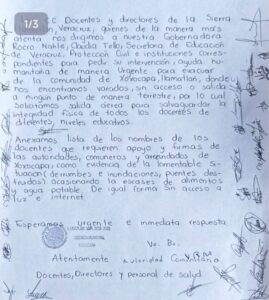 1/3
C. Docentes y directores de la Sierra
Veracruz, quienes de la manera más
atenta nos dirigimos a nuestra Gobernadora
Rocío Nahle, Claudia Tello, Secretaria de Educación
de Veracruz. Protección Civil e instituciones corres-
pondientes para pedir su intervención, ayuda hu-
manitaria de manera Urgente para evacuar
de la Comunidad de Xoxocapa, Ilamatlan, donde
nos encontramos varados, sin acceso o salida
a ningún punto de manera terrestre, por lo cual
Solicitamos salida aérea para salvaguardar la
integridad física de todos los docentes de
diferentes niveles educativos.
Anexamos lista de los nombres de los
docentes que requieren apoyo y firmas de
las autoridades, comuneros y avecindados de
Xoxocapa, como evidencia de la lamentable si-
tuación (derrumbes e inundaciones, puentes des-
truidos) ocasionando la escases de alimentos
y agua potable. De igual forma sin acceso a
luz e internet
Esperamos urgente e inmediata respuesta
Vo. Bo.
Atentamente
Autoridad Comunitaria
Docentes, Directores y Personal de salud